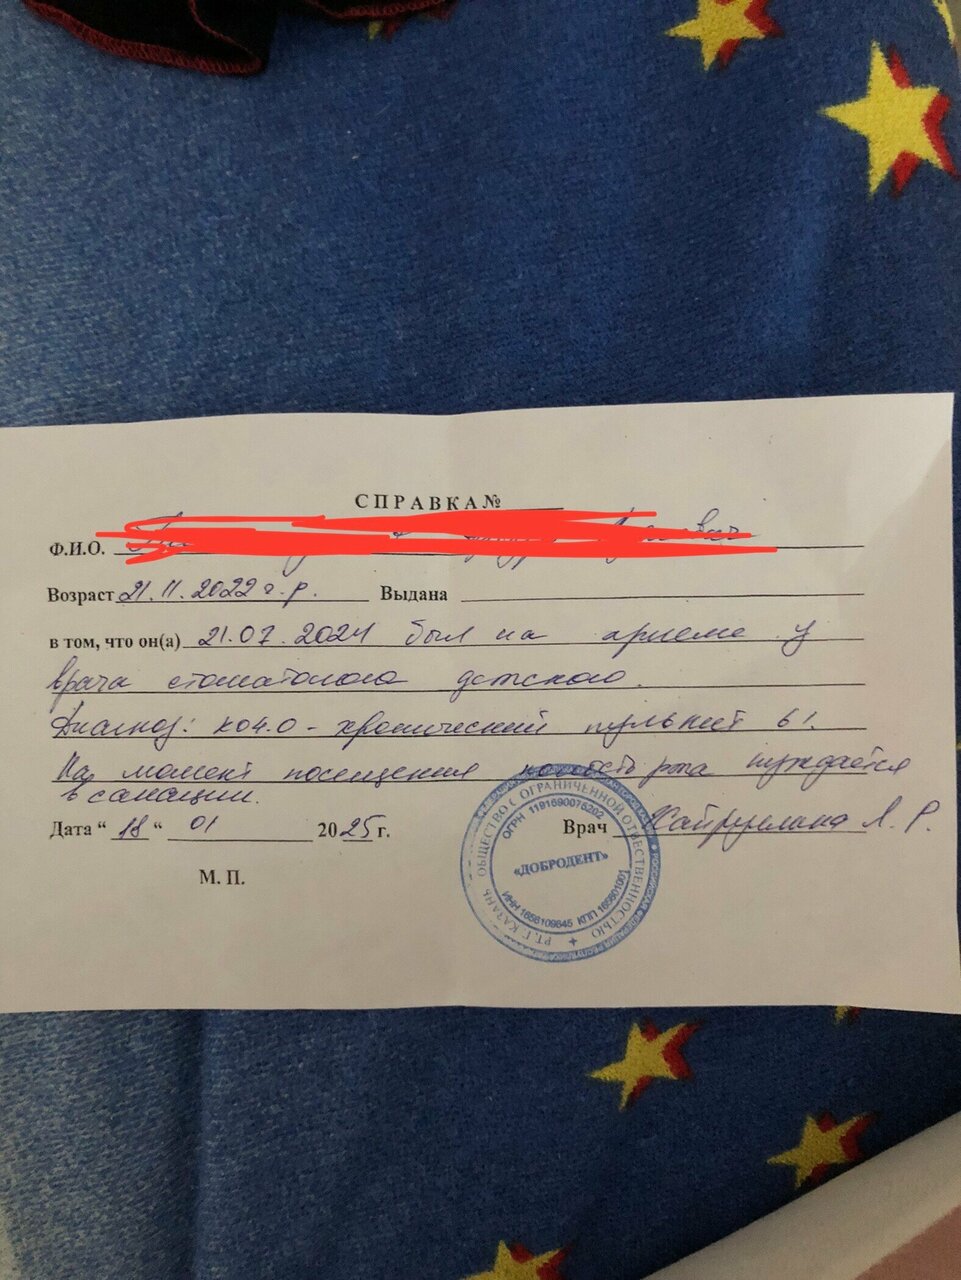 СПРАВКА №
Ф.И.О.
Возраст 21.11.2022 г.р. Выдана
в том, что он(а) 21.07.2024 был на приеме у
врача стоматолога детского.
Диагноз: К04.0 - хронический пульпит 61.
На момент посещения полость рта нуждается
в санации.
Дата "18" 01 2025 г. Врач Хайруллина Л. Р.
М. П.
РТ, Г. КАЗАНЬ ОБЩЕСТВО С ОГРАНИЧЕННОЙ ОТВЕТСТВЕННОСТЬЮ
ОГРН 1191690075202
«ДОБРОДЕНТ»
ИНН 1656109645 КПП 165601001